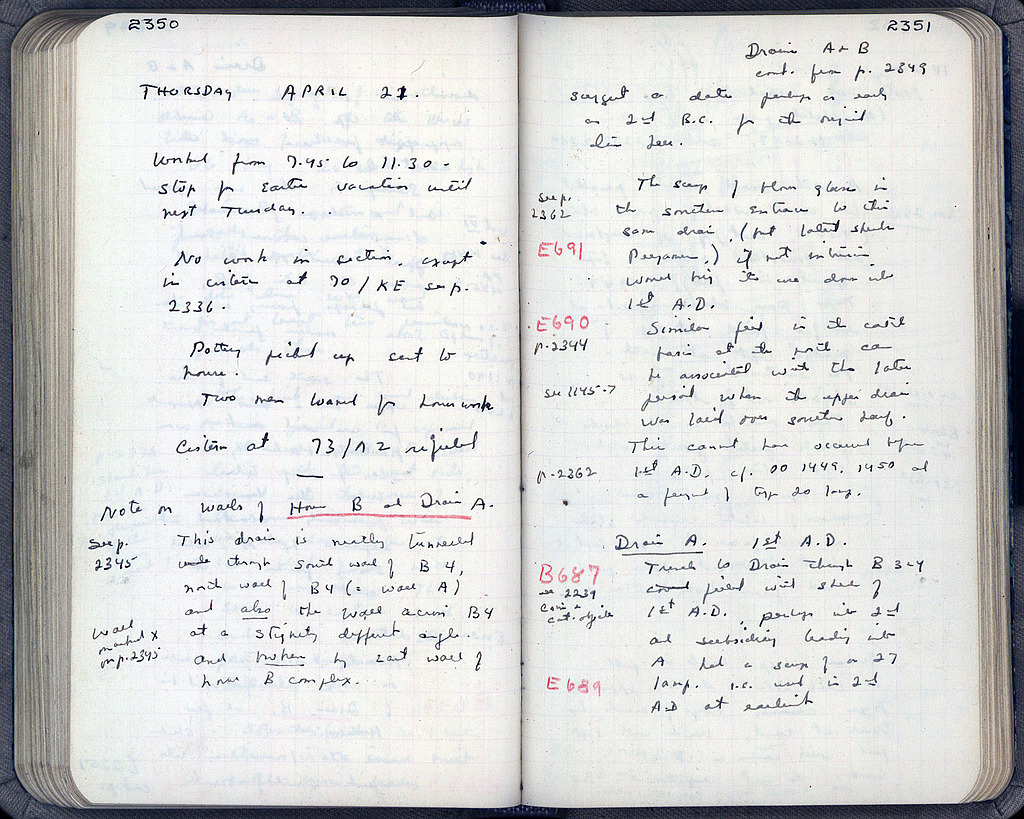 2350
THORSDAY APRIL 21.
Worked from 7.45 to 11.30 -
stop for Easter vacation until
next Tuesday.
No work in section, except
in cistern at 70/KE see p.
2336.
Pottery picked up sent to
house.
Two men loaned for housework
Cistern at 73/ refilled
Note on walls of House B and Drain A.
See p.
2345
This drain is neatly tunneled
through South wall of B 4,
north wall of B4 (= wall A)
and also the wall across B4
wall
marked X
on p. 2345
at a slightly different angle
and broken by east wall of
house B complex.
2351
Drains A + B
cont. from p. 2349
suggest a date perhaps as early
as 2nd B.C. for the original
line here.
see p.
2362
The scrap of blown glass in
the southern entrance to this
same drain, (but latest sherds
E691
Pergamene,) if not intrusive
would bring its use down into
1st A.D.
E690
p. 2344
Similar in the catch
basin at the north can
be associated with the later
see 1145-7
period when the upper drain
was laid over southern half.
This cannot have occurred before
p. 2362
1st A.D. cf. 00 1449, 1450 and
a fragment of type 20 lamp.
Drain A. 1st A.D.
B687
see 2239
Coins &
cat. objects
Trench to Drain through B 3+4
filled with sherds of
1st A.D., perhaps into 2nd
and subsidiary leading into
A had a scrap of a 27
E689
lamp. i.e. used in 2nd
A.D at earliest